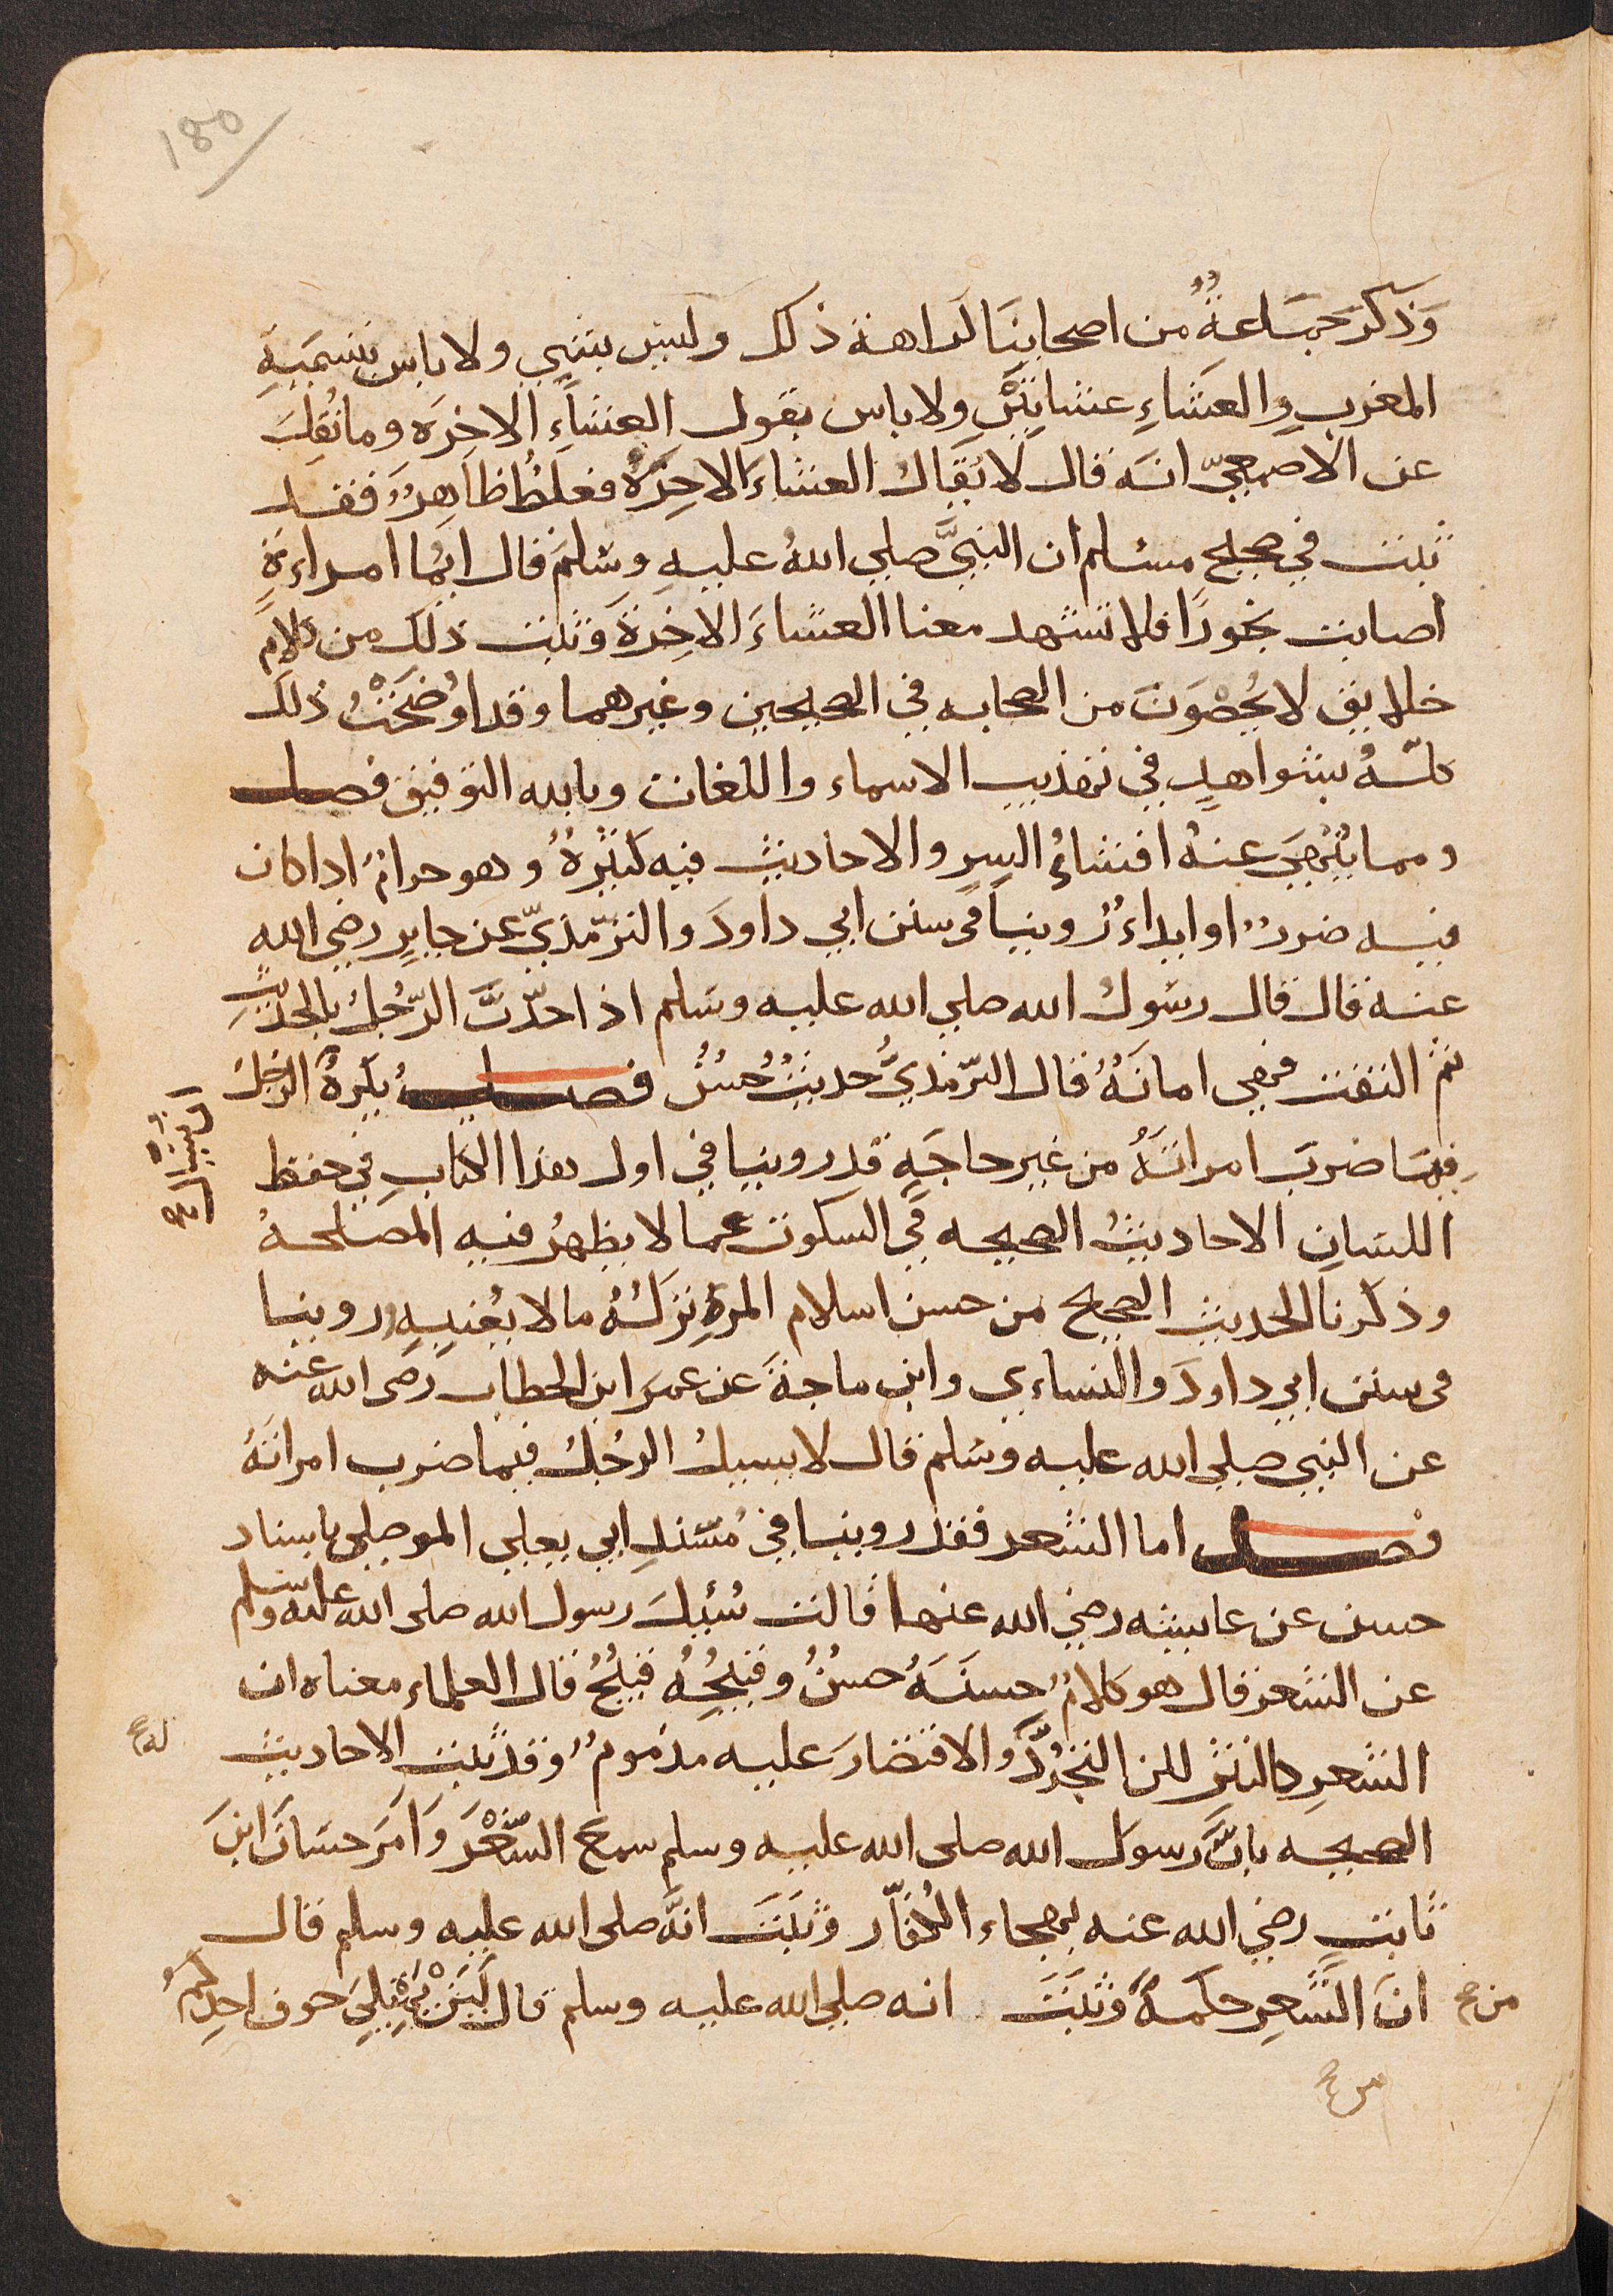 180
وَذكرَ جمَاعةٌ من اصحابنَا كراهة ذلك وليس بشي ولا باس بتسميَةِ
المغربِ والعَشاءِ عشايَيْنِ ولا باس بقول العشاءِ الاخرَه وما نُقِلَ
عن الاصمعيّ انه قال لا يُقَالُ العشاءَ الاخِرَةُ فغلطٌ ظاهِرٌ فقد
ثبت في صحيح مسلم ان النبيَّ صلي اللهُ عليهِ وسَلمَ قال ايّما امراءةٍ
اصابت بخورًا فلا تشهد معنا العشاءَ الاخِرةَ وثبت ذلك من كلامِ
خلايق لا يُحْصَوَنَ من الصحابه في الصحيحين وغيرهما وقد اوْضَحْتُ ذلك
كلّهُ بشواهدِ في تهذيب الاسماء واللغات وبالله التوفيق فصل
ومما يُنْهَي عنهُ افشاءُ السِر والاحاديث فيه كثيْرةٌ وهو حرامٌ اذا كان
فيه ضررٌ او ايداءٌ روينا فى سنن ابي داودَ والترّمذيّ عن جابرٍ رضي الله
عنه قال قال رسُولُ الله صلي الله عليه وسَلم اذا حدّثَ الرّجُلُ بالحديثِ
ثم التفت فهي امانَةُ قال الترّمذيُّ حديثٌ حسُنٌ فصل يُكرهُ ان
يُسْئَل الرجلُ
فيمَا ضربَ امراتَهُ من غيرِ حاجَةٍ قد روينا في اول هذا الكتابِ في حفظ
اللسَانِ الاحاديثُ الصحيحه في السكوت عما لا يظهرُ فيهِ المصلحهُ
وذكرنا الحديث الصحيح من حسن اسلام المرءِ تركهُ ما لا يعْنيهِ وروينا
فى سنن ابي داودَ والنساءي وابن ماجةَ عن عمرَ ابن الخطاب رضى الله عنه
عن النبي صلي الله عليه وسَلم قال لا يسيلُ الرجُلُ فيما ضرب امراتَهُ
فصل اما الشعر فقد روينا في مُسْندِ ابي يعلي الموصلي باسناد
حسن عن عايشه رضي الله عنها قالت سُئيلَ رسول الله صلى الله عليه وسلم
عن الشعر فقال هو كلامٌ حسنَهُ حسُنٌ وقبيْحُهُ قبيْحٌ قال العلماء معناه ان
الشعرِ كالنثرِ لكن التجرُّدَ والاقتصارَ عليه مذمومٌ وقد ثبتتِ الاحاديث
له ع
الصحيحه بانَّ رسول الله صلى الله عليه وسلم سمع الشّعْرَ وَاَمَرَ حسَانَ ابنَ
ثابت رضي الله عنه بهجاء الكُفّار وثبَتَ انّهَ صلى الله عليه وسلم قال
من ح انَ الشَّعرِ حكمةً وثبَتَ انه صلي الله عليه وسلم قال لَيَنْ يمْتلِيَ جوف احدِكمْ
من ح